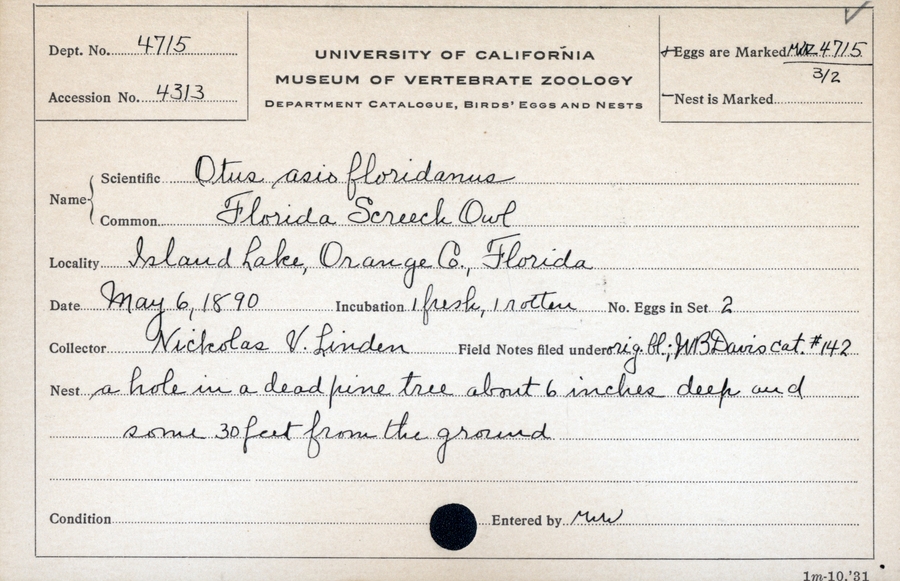 Dept. No. 4715
Accession No. 4313
UNIVERSITY OF CALIFORNIA
MUSEUM OF VERTEBRATE ZOOLOGY
DEPARTMENT CATALOGUE, BIRDS' EGGS AND NESTS
Eggs are Marked MVZ 4715
3/2
Nest is Marked
Name
Scientific Otus asio floridanus
Common Florida Screech Owl
Locality Island Lake, Orange Co., Florida
Date May 6, 1890 Incubation 1 fresh, 1 rotten No. Eggs in Set 2
Collector Nickolas V. Linden Field Notes filed under orig. bl.; WBDavis cat. #142
Nest a hole in a dead pine tree about 6 inches deep and
some 30 feet from the ground
Condition Entered by
1m-10,'31